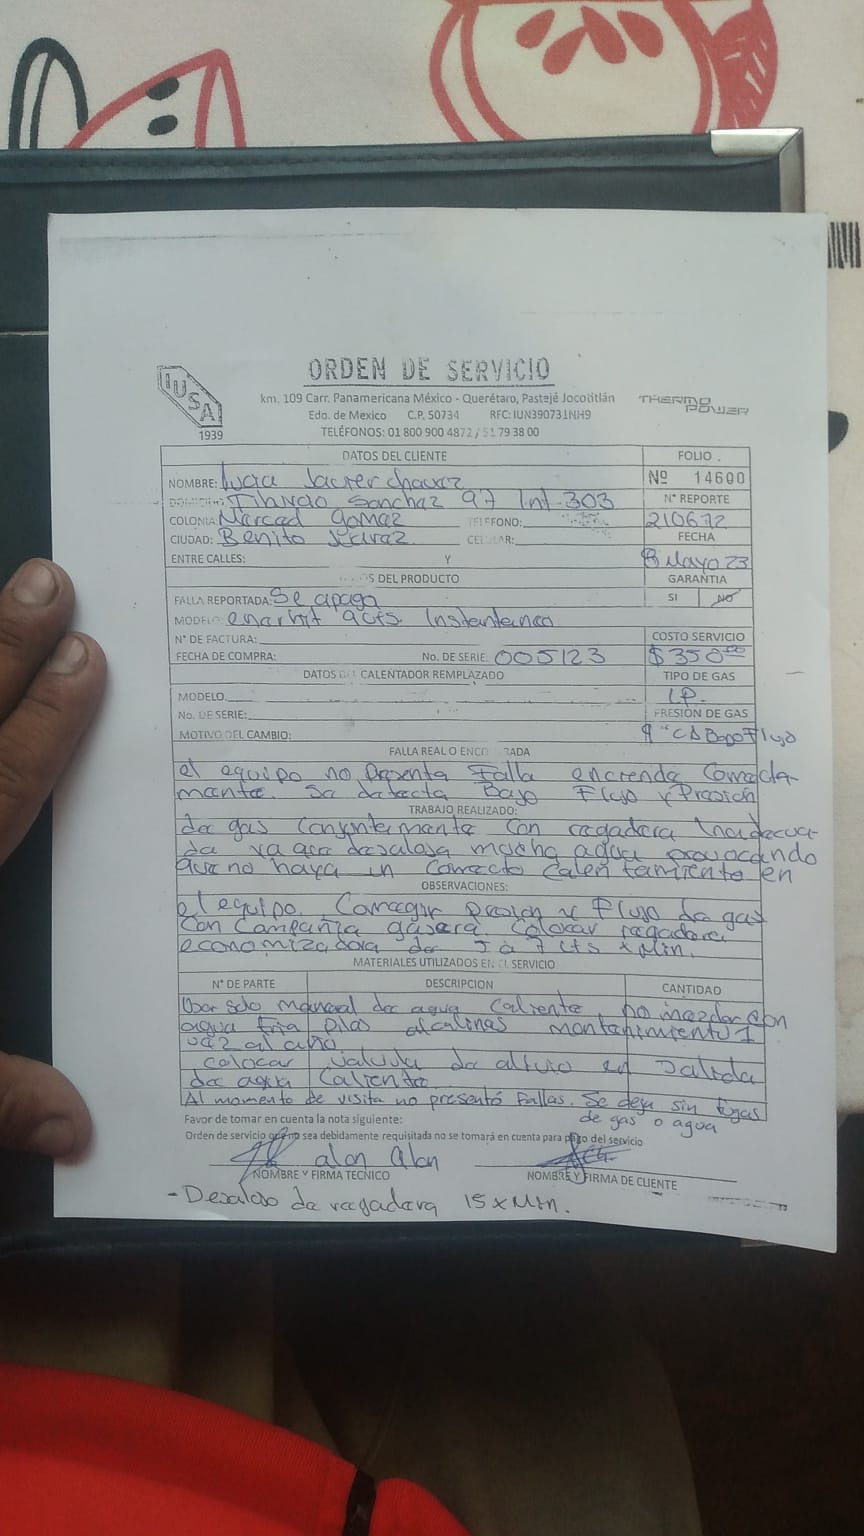 IUSA
1939
ORDEN DE SERVICIO
km. 109 Carr. Panamericana México - Querétaro, Pastejé Jocotitlán
Edo. de Mexico C.P. 50734 RFC: IUN390731NH9
TELÉFONOS: 01 800 900 4872 / 51 79 38 00
THERMO POWER
DATOS DEL CLIENTE
FOLIO
NOMBRE: Lucia Chavez
Nº 14600
Tiburcio Sanchez 97 Int. 303
N° REPORTE
COLONIA: Marced Gomaz TELEFONO:
210672
CIUDAD: Benito Jearaz CELULAR:
FECHA
ENTRE CALLES: Y
8 Mayo 23
DEL PRODUCTO
GARANTIA
FALLA REPORTADA: Se apaga
SI NO
MODELO: enarhit 9Lts. Instantanao
N° DE FACTURA:
COSTO SERVICIO
FECHA DE COMPRA: No. DE SERIE: 005123
$350.00
DATOS DEL CALENTADOR REMPLAZADO
TIPO DE GAS
MODELO.
L.P.
No. DE SERIE:
PRESION DE GAS
MOTIVO DEL CAMBIO:
9 "CA Bajo Flujo
FALLA REAL O ENCONTRADA
el equipo no presenta Falla encienda Corracta-
manta. Sa datacta Bajo Flujo y Prasion
TRABAJO REALIZADO:
da gas Conjuntamanta con ragadara Inadacua-
da ya qua dasaloja mucha agua provocando
qua no haya un Corracto Calentamianto en
OBSERVACIONES:
el equipo. Corragir prasion y Flujo da gas
con Compañia gasara. Colocar ragadara
economizadora da 5 a 7 Lts x Min.
MATERIALES UTILIZADOS EN EL SERVICIO
N° DE PARTE DESCRIPCION CANTIDAD
Usar solo manaral da agua Caliente, no mazclar con
agua fria pilas alcalinas mantanimiento 1
vaz al año
colocar valvula da alivio en salida
da agua Caliente.
Al momento de visita no presentó Fallas. Se deja sin fugas
de gas o agua
Favor de tomar en cuenta la nota siguiente:
Orden de servicio que no sea debidamente requisitada no se tomará en cuenta para pago del servicio
alan Alan
NOMBRE Y FIRMA TECNICO
NOMBRE Y FIRMA DE CLIENTE
- Desalojo da ragadara 15 x Min.